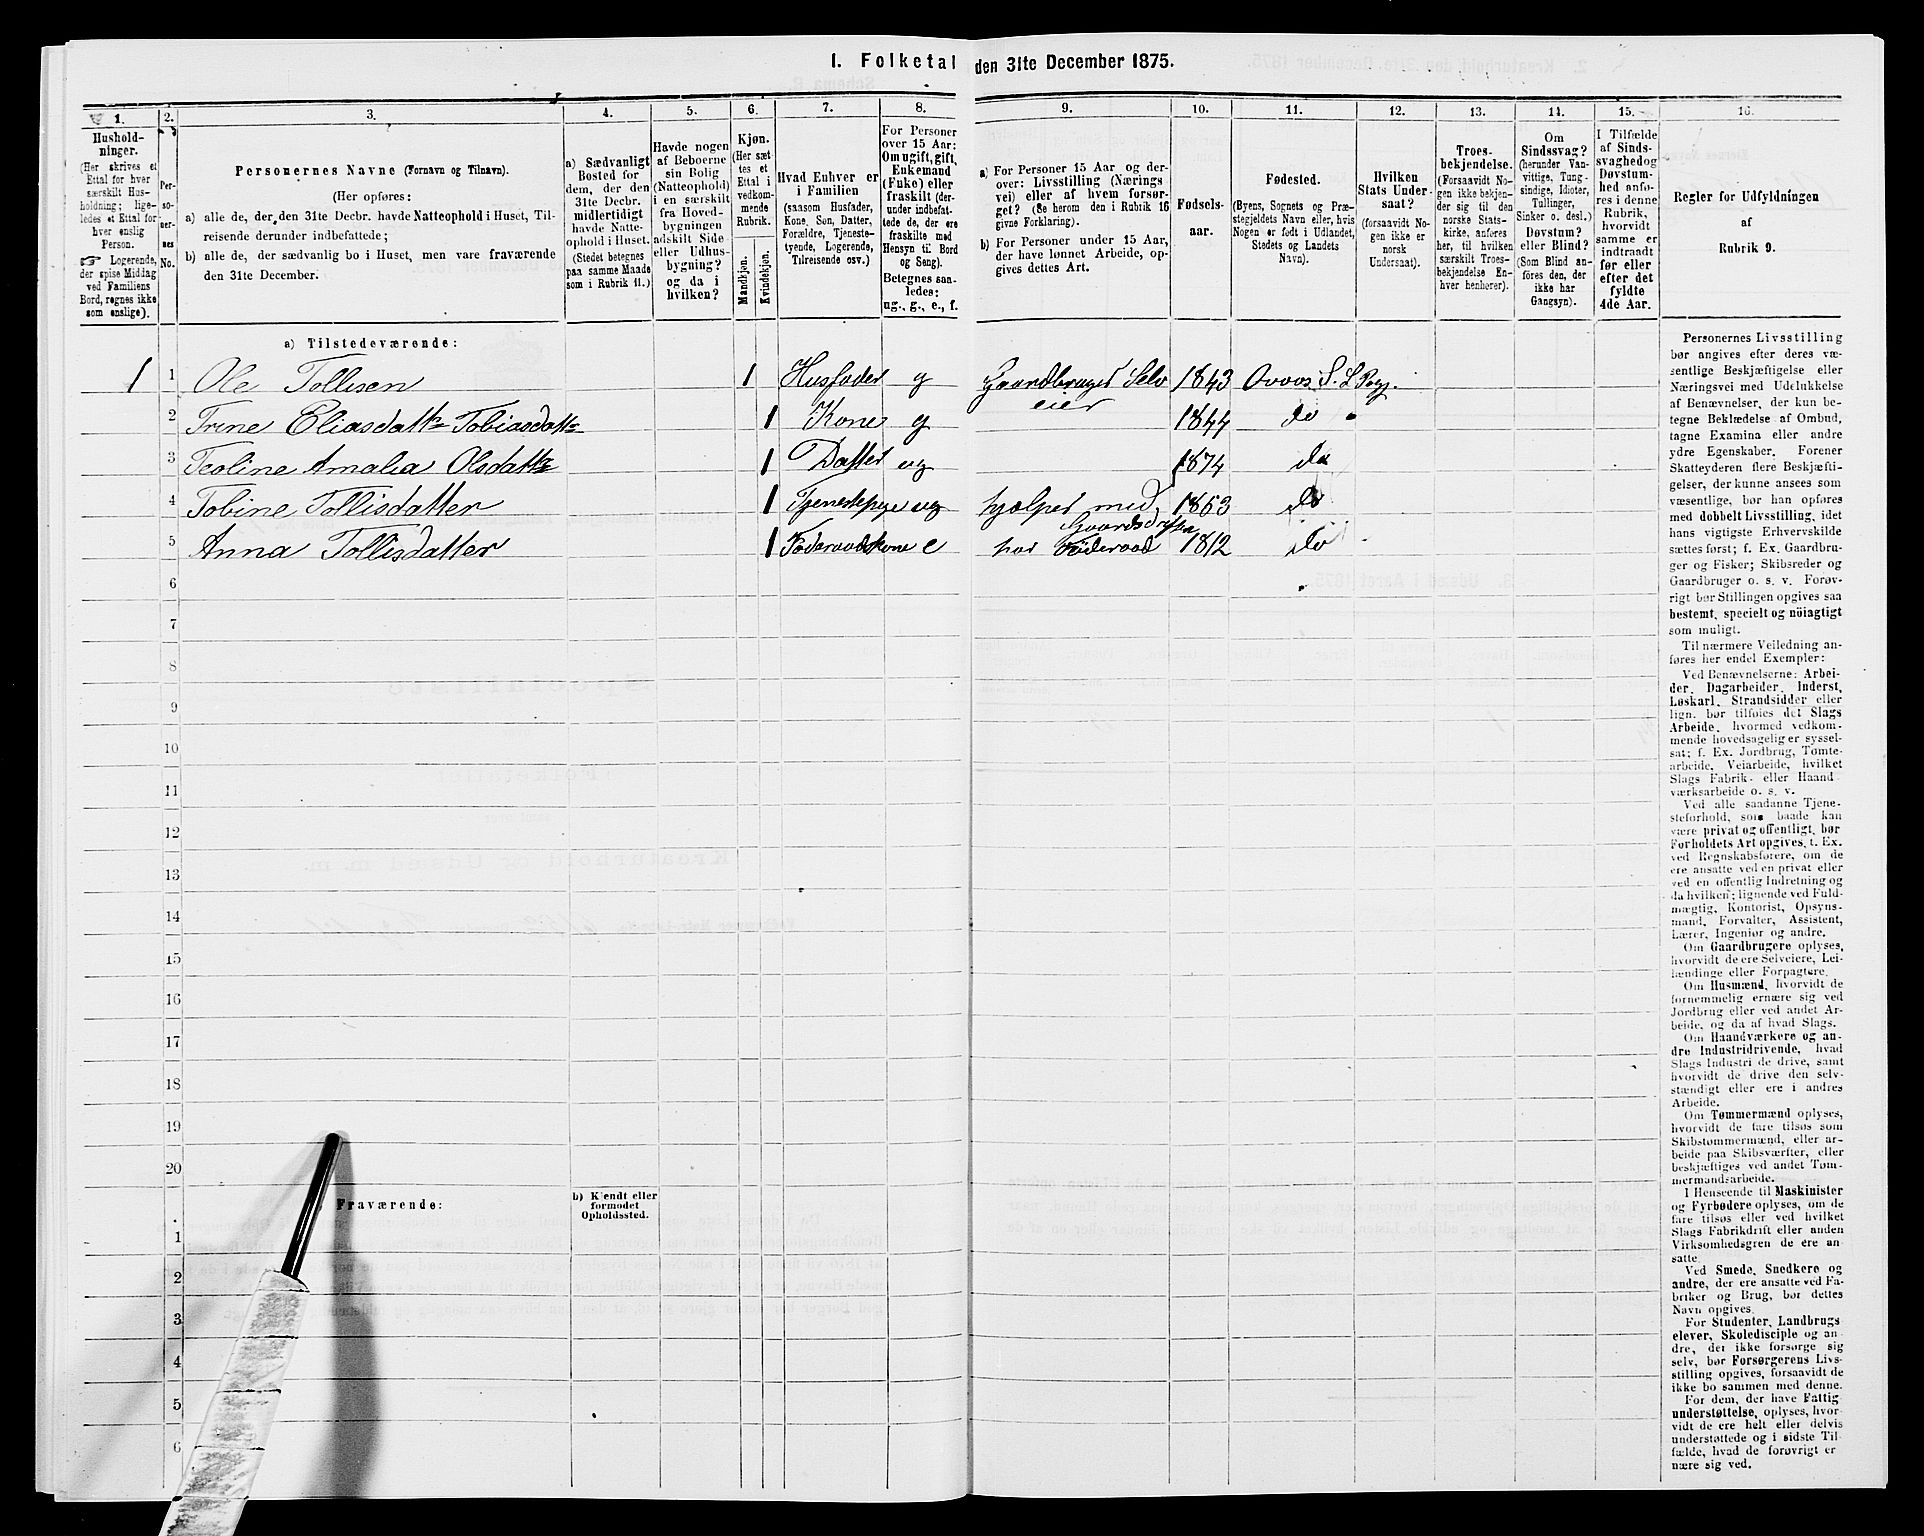 I. Folketal den 31te December 1875.
1.
2.
3.
4.
5.
6.
7.
8.
9.
10.
11.
12.
13.
14.
15.
16.
Hushold-
ninger.
(Her skrives et
Ettal for hver
særskilt Hus-
holdning; lige-
ledes et Ettal for
hver enslig
Person.
☞ Logerende,
der spise Middag
ved Familiens
Bord, regnes ikke
som enslige).
Per-
so-
ner-
nes
No.
Personernes Navne (Fornavn og Tilnavn).
(Her opføres:
a) alle de, der den 31te Decbr. havde Natteophold i Huset, Til-
reisende derunder indbefattede;
b) alle de, der sædvanlig bo i Huset, men vare fraværende
den 31te December.)
a) Sædvanligt
Bosted for
dem, der den
31te Decbr.
midlertidigt
havde Natte-
ophold i Huset.
(Stedet betegnes
paa samme Maade
som i Rubrik 11.)
Havde nogen
af Beboerne
sin Bolig
(Natteophold)
i en særskilt
fra Hoved-
bygningen
adskilt Side
eller Udhus-
bygning?
og da i
hvilken?
Kjøn.
(Her sæt-
tes et
Ettal i
vedkom-
mende
Rubrik.
Mandkjøn.
Kvindekjøn.
Hvad Enhver er
i Familien
(saasom Husfader,
Kone, Søn, Datter,
Forældre, Tjeneste-
tyende, Logerende,
Tilreisende osv.)
For Personer
over 15 Aar:
Om ugift, gift,
Enkemand
(Enke) eller
fraskilt (der-
under indbefat-
tede de, der ere
fraskilte med
Hensyn til Bord
og Seng).
Betegnes saa-
ledes:
ug., g., e., f.
a) For Personer 15 Aar og der-
over: Livsstilling (Nærings
vei) eller af hvem forsør-
get? (Se herom den i Rubrik 16
givne Forklaring).
b) For Personer under 15 Aar,
der have lønnet Arbeide, op-
gives dettes Art.
Fødsels-
aar.
Fødested.
(Byens, Sognets og Præ-
stegjeldets Navn eller, hvis
Nogen er født i Udlandet,
Stedets og Landets
Navn).
Hvilken
Stats Under-
saat?
(forsaavidt No-
gen ikke er
norsk
Undersaat).
Troes-
bekjendelse.
(Forsaavidt No-
gen ikke bekjen-
der sig til den
norske Stats-
kirke, anføres
her, til hvilken
særskilt Troes-
bekjendelse En-
hver henhører).
Om
Sindssvag?
(herunder Van-
vittige, Tung-
sindige, Idioter,
Tullinger,
Sinker o. desl.)
Døvstum?
eller Blind?
(Som Blind an-
føres den, der
ikke har
Gangsyn).
I Tilfælde
af Sinds-
svaghed og
Døvstum-
hed anfø-
res i denne
Rubrik,
hvorvidt
samme er
indtraadt
før eller
efter det
fyldte
4de Aar.
Regler for Udfyldningen
af
Rubrik 9.
a) Tilstedeværende:
1 1 Ole Tollisen 1 Husfader g Gaardbruger Selv 1843 S. L Prgj.
eier
2 Trine Eliasdatter Tobiasdatter 1 Kone g 1844 do
3 Teoline Amalia Olsdatter 1 Datter ug 1874 do
4 Tobine Tollisdatter 1 Tjenestepige ug hjelper med 1853 do
Gaardsdriften
5 Anna Tollisdatter 1 Føderaadskone e har Føderaad 1812 do
6
7
8
9
10
11
12
13
14
15
16
17
18
19
20
Fraværende:
b) Kjendt eller
formodet
Opholdssted.
1
2
3
4
5
6
Personernes Livsstilling
bør angives efter deres væ-
sentlige Beskjæftigelse eller
Næringsvei med Udelukkelse
af Benævnelser, der kun be-
tegne Beklædelse af Ombud,
tagne Examina eller andre
ydre Egenskaber. Forener
Skatteyderen flere Beskjæfti-
gelser, der kunne ansees som
væsentlige, bør han opføres
med dobbelt Livsstilling, idet
hans vigtigste Erhvervskilde
sættes først; f. Ex. Gaardbru-
ger og Fisker; Skibsreder og
Gaardbruger o. s. v. Forøv-
rigt bør Stillingen opgives saa
bestemt, specielt og nöiagtigt
som muligt.
Til nærmere Veiledning an-
føres her endel Exempler:
Ved Benævnelserne: Arbei-
der, Dagarbeider, Inderst,
Løskarl, Strandsidder eller
lign. bør tilføies det Slags
Arbeide, hvormed vedkom-
mende hovedsagelig er syssel-
sat; f. Ex. Jordbrug, Tømte-
arbeide, Veiarbeide, hvilket
Slags Fabrik- eller Haand
værksarbeide o. s. v.
Ved alle saadanne Tjene-
steforhold, som baade kan
være privat og offentligt, bør
Forholdets Art opgives, t. Ex.
ved Regnskabsførere, om de
ere ansatte ved en privat eller
ved en offentlig Indretning og
da hvilken; lignende ved Fuld-
mægtig, Kontorist, Opsyns-
mand, Forvalter, Assistent,
Lærer, Ingeniør og andre.
Om Gaardbrugere oplyses,
hvorvidt de ere Selveiere, Lei-
lændinge eller Forpagtere.
Om Husmænd, hvorvidt de
fornemmelig ernære sig ved
Jordbrug eller ved andet Ar-
beide, og da af hvad Slags.
Om Haandværkere og an-
dre Industridrivende, hvad
Slags Industri de drive, samt
hvorvidt de drive den selv-
stændigt eller ere i andres
Arbeide.
Om Tømmermænd oplyses,
hvorvidt de fare tilsøs som
Skibstømmermænd, eller ar-
beide paa Skibsværfter, eller
beskjæftiges ved andet Tøm-
mermandsarbeide.
I Henseende til Maskinister
og Fyrbødere oplyses, om de
fare tilsøs eller ved hvilket
Slags Fabrikdrift eller anden
Virksomhedsgren de ere an-
satte.
Ved Smede, Snedkere og
andre, der ere ansatte ved Fa-
briker og Brug, bør dettes
Navn opgives.
For Studenter, Landbrugs
elever, Skoledisciple og an-
dre, der ikke forsørge sig
selv, bør Forsørgerens Livs-
stilling opgives, forsaavidt de
ikke bo sammen med denne.
For dem, der have Fattig
understøttelse, oplyses, hvor-
vidt de ere helt eller delvis
understøttede og i sidste Til-
fælde, hvad de forøvrigt er
nære sig ved.